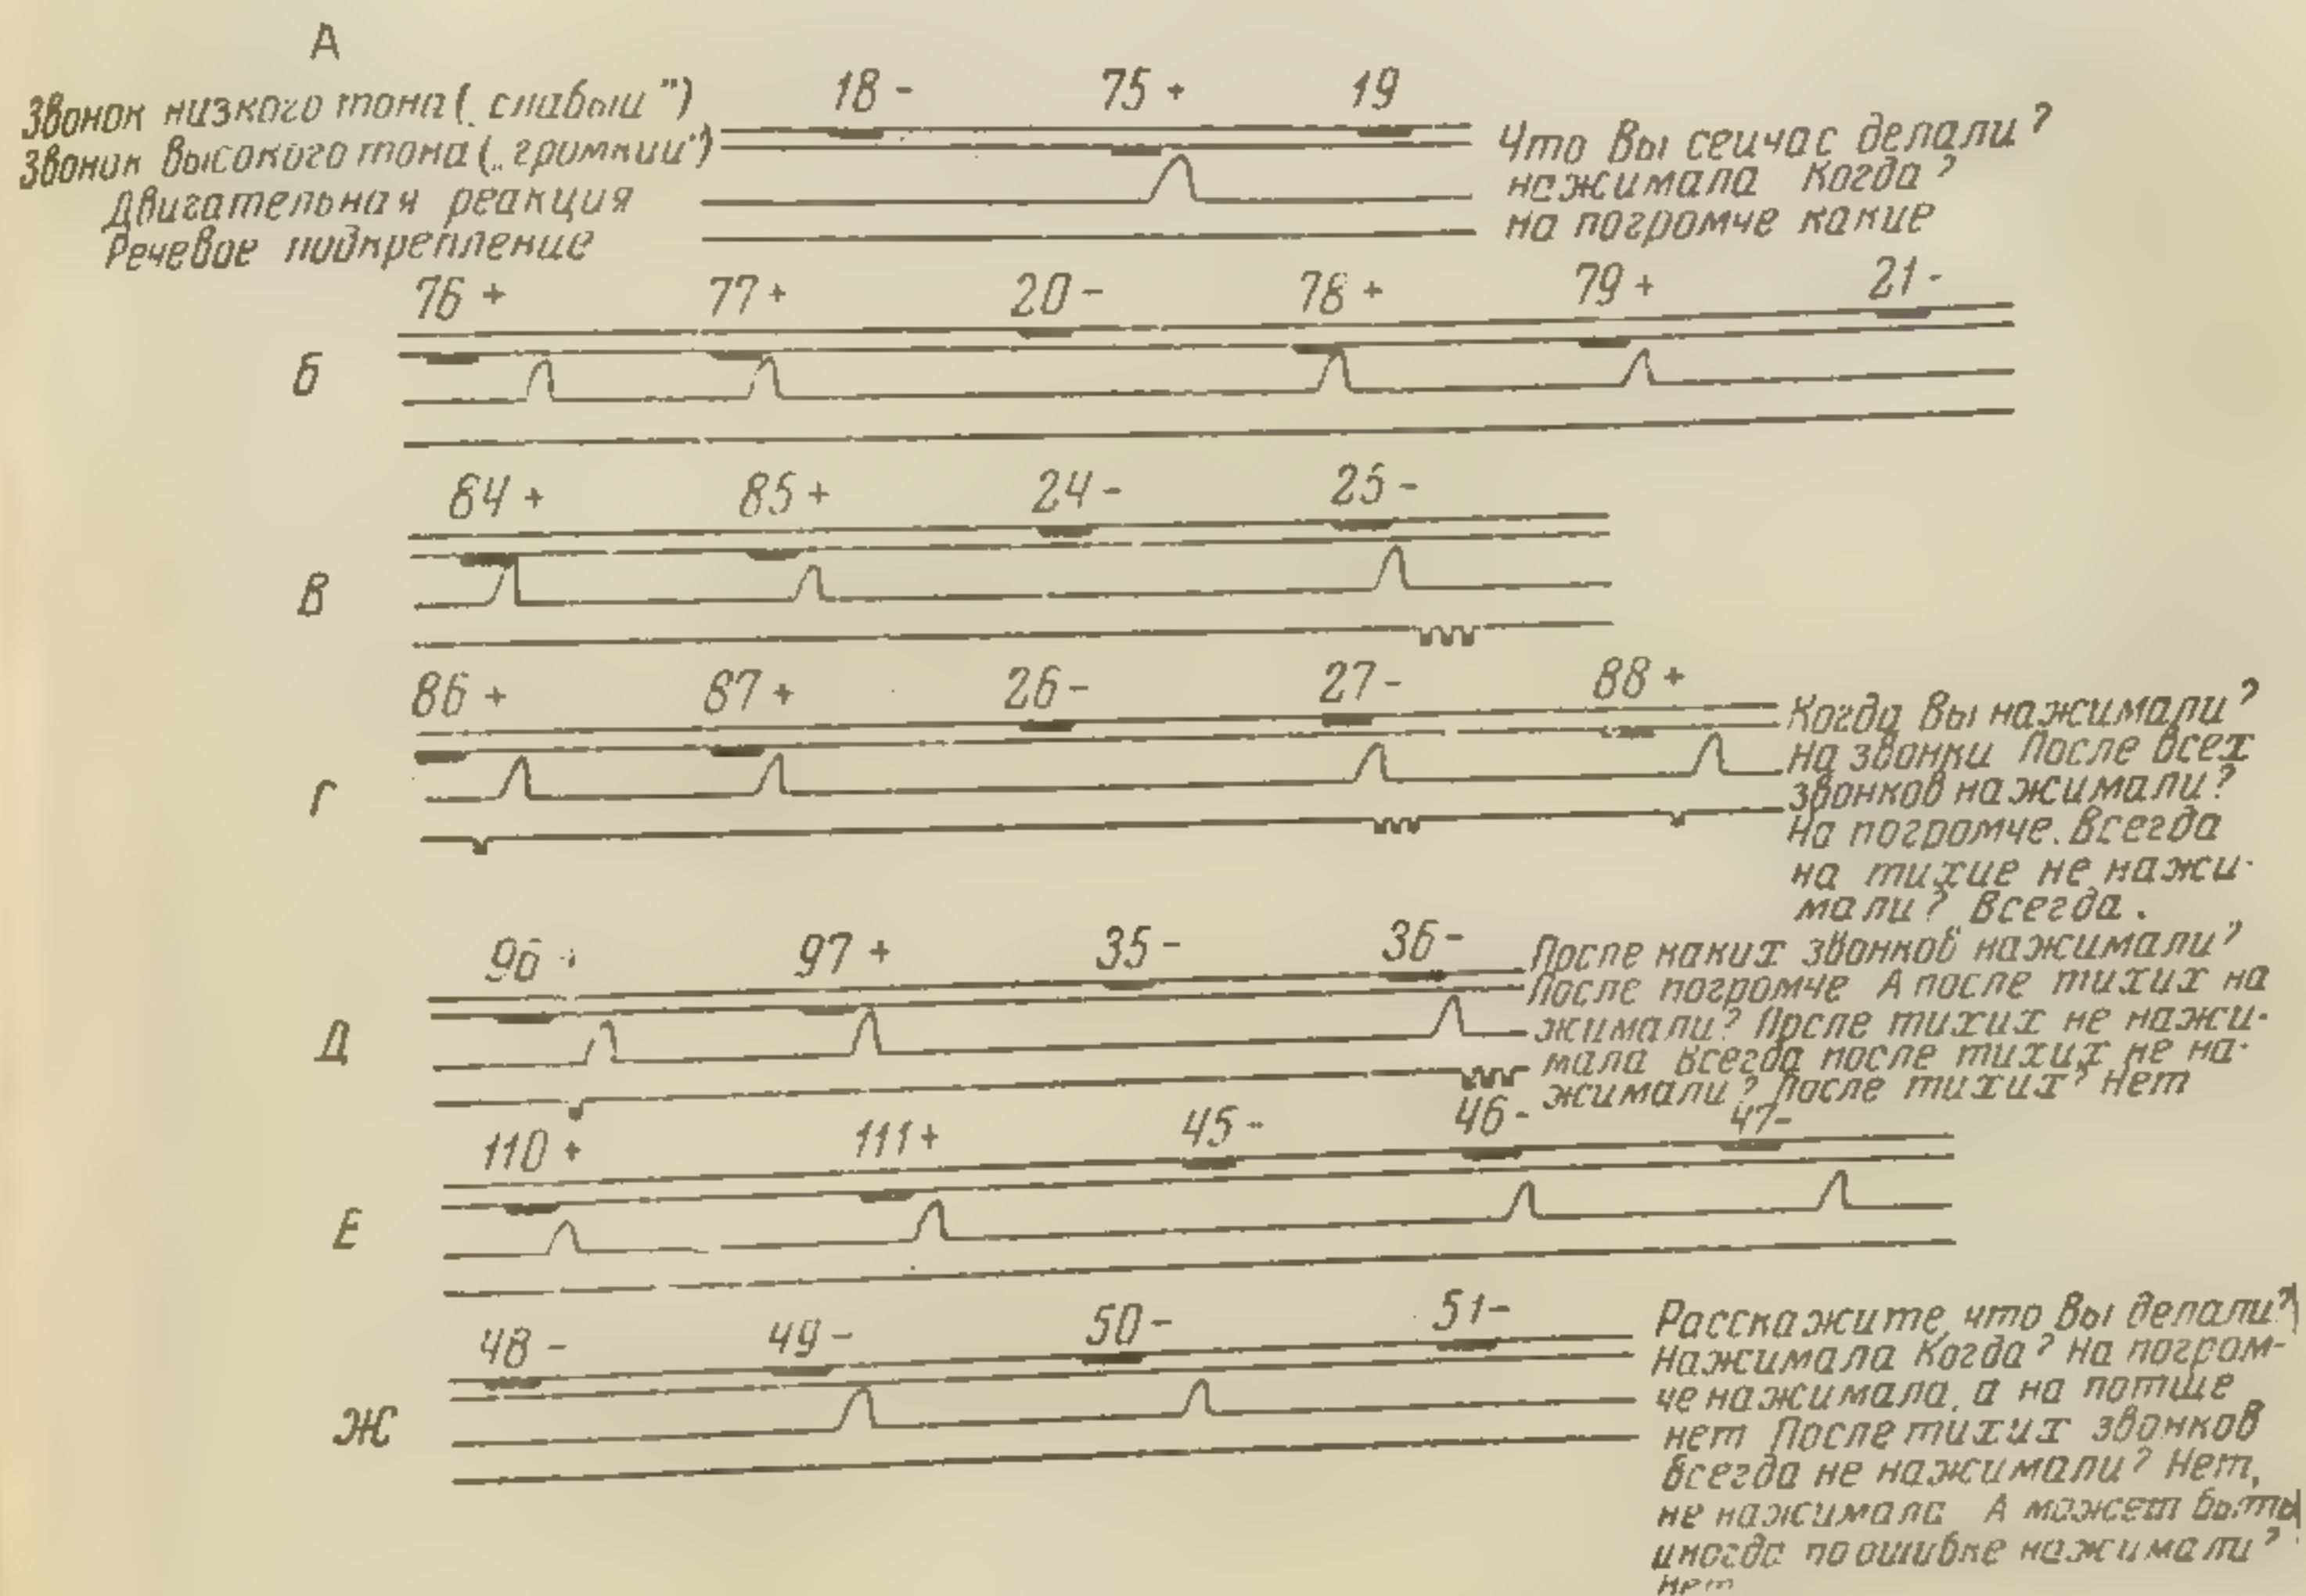 А
18 - 75 + 19
Звонок низкого тона („слабый")
Звонок высокого тона („громкий")
Двигательная реакция
Речевое подкрепление
Что Вы сейчас делали?
нажимала Когда?
на погромче какие
76 + 77 + 20 - 78 + 79 + 21 -
Б
84 + 85 + 24 - 25 -
В
86 + 87 + 26 - 27 - 88 +
Г
Когда Вы нажимали?
На звонки После всех
звонков нажимали?
На погромче. Всегда
на тихие не нажи-
мали? Всегда.
96 + 97 + 35 - 36 -
Д
После каких звонков нажимали?
После погромче А после тихих на
жимали? После тихих не нажи-
мала Всегда после тихих не на-
жимали? После тихих? Нет
110 + 111 + 45 - 46 - 47 -
Е
48 - 49 - 50 - 51 -
Ж
Расскажите, что Вы делали?
Нажимала Когда? На погром-
че нажимала, а на потише
нет После тихих звонков
всегда не нажимали? Нет,
не нажимала А может быть
иногда по ошибке нажимали?
Нет